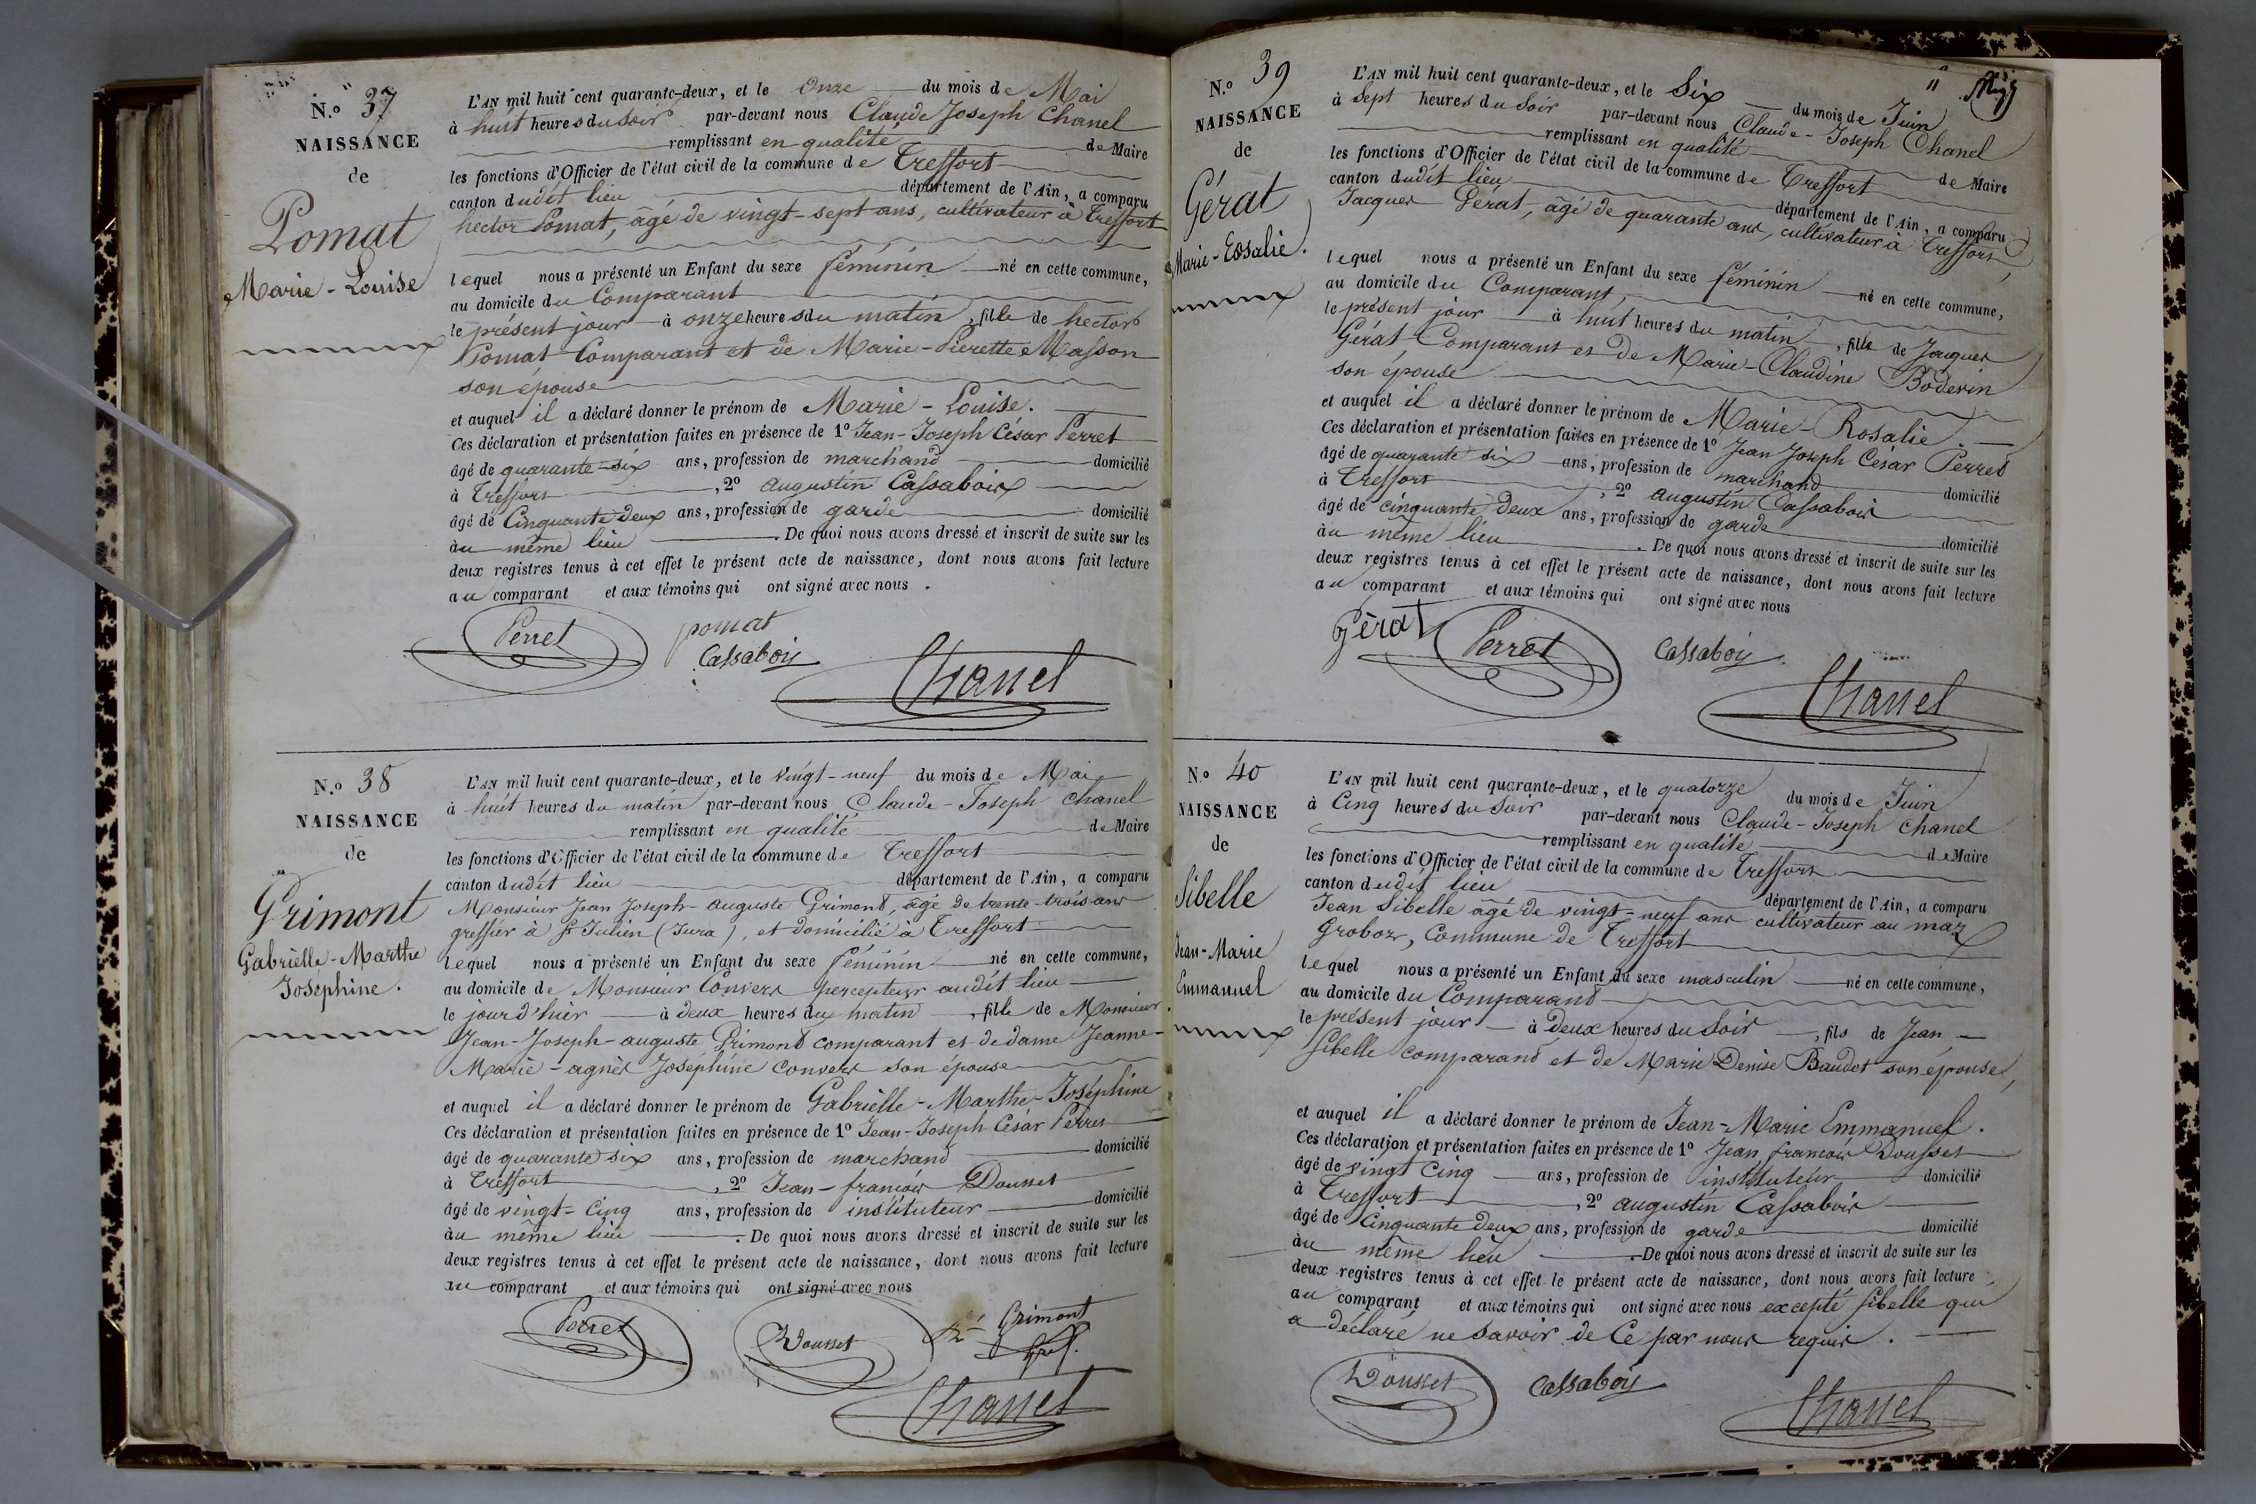 N.º 37
NAISSANCE
de
Pomat
Marie-Louise
L'AN mil huit cent quarante-deux, et le onze du mois de Mai
à huit heures du soir par-devant nous Claude Joseph Chanel
remplissant en qualité de Maire
les fonctions d'Officier de l'état civil de la commune de Treffort
canton dudit lieu département de l'Ain, a comparu
hector Pomat, âgé de vingt-sept ans, cultivateur à Treffort
lequel nous a présenté un Enfant du sexe féminin né en cette commune,
au domicile du Comparant
le présent jour à onze heures du matin, fille de hector
Pomat Comparant et de Marie-Pierrette Masson
son épouse
et auquel il a déclaré donner le prénom de Marie-Louise.
Ces déclaration et présentation faites en présence de 1º Jean-Joseph César Perret
âgé de quarante-six ans, profession de marchand domicilié
à Treffort, 2º augustin Cassabois
âgé de Cinquante deux ans, profession de garde domicilié
au même lieu. De quoi nous avons dressé et inscrit de suite sur les
deux registres tenus à cet effet le présent acte de naissance, dont nous avons fait lecture
au comparant et aux témoins qui ont signé avec nous.
Perret pomat
Cassaboij
Chanel
N.º 38
NAISSANCE
de
Grimont
Gabrielle-Marthe
Joséphine.
L'AN mil huit cent quarante-deux, et le vingt-neuf du mois de Mai
à huit heures du matin par-devant nous Claude-Joseph Chanel
remplissant en qualité de Maire
les fonctions d'Officier de l'état civil de la commune de Treffort
canton dudit lieu département de l'Ain, a comparu
Monsieur Jean Joseph-auguste Grimont, âgé de trente-trois ans
greffier à St Julien (Jura), et domicilié à Treffort
lequel nous a présenté un Enfant du sexe féminin né en cette commune,
au domicile de Monsieur Convers percepteur audit lieu
le jour d'hier à deux heures du matin, fille de Monsieur
Jean-Joseph-auguste Grimont comparant et de dame Jeanne-
Marie-agnès Joséphine Convers son épouse
et auquel il a déclaré donner le prénom de Gabrielle-Marthe-Joséphine
Ces déclaration et présentation faites en présence de 1º Jean-Joseph César Perret
âgé de quarante six ans, profession de marchand domicilié
à Treffort, 2º Jean-francois Dousset
âgé de vingt-cinq ans, profession de instituteur domicilié
au même lieu. De quoi nous avons dressé et inscrit de suite sur les
deux registres tenus à cet effet le présent acte de naissance, dont nous avons fait lecture
au comparant et aux témoins qui ont signé avec nous
Perret Dousset Grimont
Chanel
N.º 39
NAISSANCE
de
Gérat
Marie-Rosalie.
L'AN mil huit cent quarante-deux, et le Six du mois de Juin
à sept heures du soir par-devant nous Claude-Joseph Chanel
remplissant en qualité de Maire
les fonctions d'Officier de l'état civil de la commune de Treffort
canton dudit lieu département de l'Ain, a comparu
Jacques Gérat, âgé de quarante ans, cultivateur à Treffort,
lequel nous a présenté un Enfant du sexe féminin né en cette commune,
au domicile du Comparant,
le présent jour à huit heures du matin, fille de Jacques
Gérat Comparant et de Marie-Claudine Bodevin
son épouse
et auquel il a déclaré donner le prénom de Marie-Rosalie.
Ces déclaration et présentation faites en présence de 1º Jean Joseph César Perret
âgé de quarante six ans, profession de marchand domicilié
à Treffort, 2º augustin Cassabois
âgé de cinquante deux ans, profession de garde domicilié
au même lieu. De quoi nous avons dressé et inscrit de suite sur les
deux registres tenus à cet effet le présent acte de naissance, dont nous avons fait lecture
au comparant et aux témoins qui ont signé avec nous
Gérat Perret Cassaboij
Chanel
N.º 40
NAISSANCE
de
Sibelle
Jean-Marie
Emmanuel
L'AN mil huit cent quarante-deux, et le quatorze du mois de Juin
à Cinq heures du soir par-devant nous Claude-Joseph Chanel
remplissant en qualité de Maire
les fonctions d'Officier de l'état civil de la commune de Treffort
canton dudit lieu département de l'Ain, a comparu
Jean Sibelle âgé de vingt-neuf ans cultivateur au maz
Groboz, Commune de Treffort
lequel nous a présenté un Enfant du sexe masculin né en cette commune,
au domicile du Comparant
le présent jour à deux heures du soir, fils de Jean
Sibelle comparant et de Marie Denise Baudet son épouse,
et auquel il a déclaré donner le prénom de Jean-Marie Emmanuel.
Ces déclaration et présentation faites en présence de 1º Jean francois Dousset
âgé de vingt cinq ans, profession de instituteur domicilié
à Treffort, 2º augustin Cassabois
âgé de cinquante deux ans, profession de garde domicilié
au même lieu. De quoi nous avons dressé et inscrit de suite sur les
deux registres tenus à cet effet le présent acte de naissance, dont nous avons fait lecture
au comparant et aux témoins qui ont signé avec nous excepté Sibelle qui
a déclaré ne savoir de Ce par nous requis.
Dousset Cassaboij
Chanel